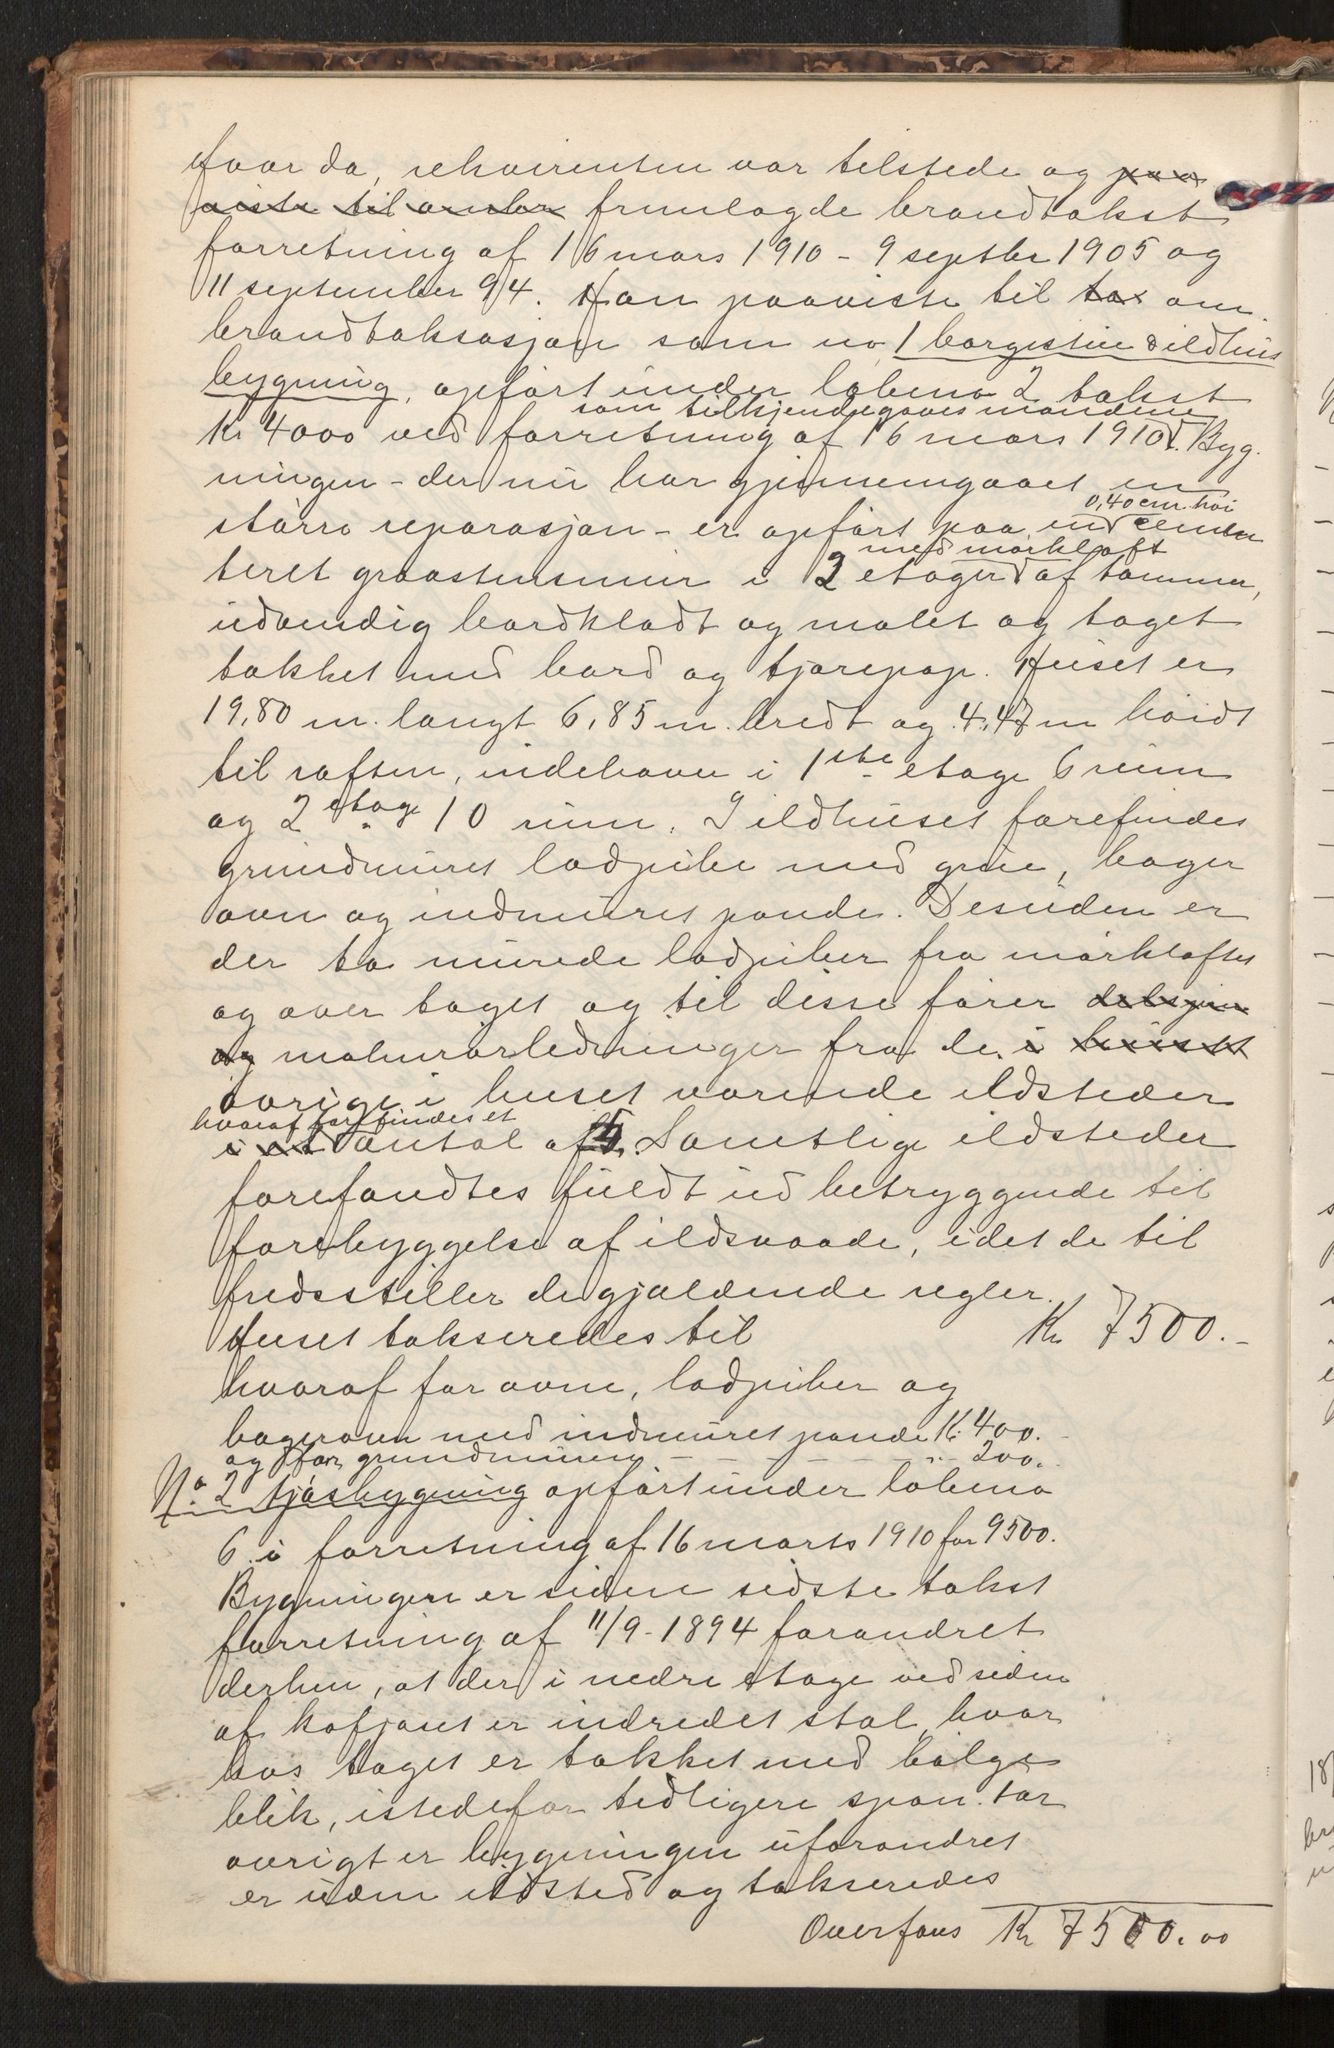 Hvor da, rekvirenten var tilstede og paa
viste til ombr fremlagde brandtakst
forretning af 16 mars 1910 - 9 septbr 1905 og
11 september 94. Han paaviste til tax om
brandtaksasjon som no 1 borgestue & ildhus
bygning, opført under løbeno 2 takst
som tilkjendegaves mændene
Kr 4000 ved forretning af 16 mars 1910. Byg.
ningen - der nu har gjennemgaaet en
større reparasjon - er opført paa en 0,40 cm. høi cemen
teret graastensmur i 2 etager med mørkloft af tømmer,
udvendig bordklædt og malet og taget
tækket med bord og tjærepap. Huset er
19,80 m. langt 6,85 m. bredt og 4,47 m høidt
til raften, indehaver i 1ste etage 6 rum
og 2 etage 10 rum. I ildhuset forefindes
grundmuret ladpibe med grue, bager
ovn og indmuret pande. Desuden er
der to murede ladpiber fra mørkloftet
og over taget og til disse fører
og malmrørledninger fra de i huset
øvrige i huset værende ildsteder
hvoraf forefindes et
i et antal af 5. Samtlige ildsteder
forefandtes fuldt ud betryggende til
forebyggelse af ildsvaade, idet de til
fredsstiller de gjældende regler.
Huset takseredes til Kr 7500.-
hvoraf for ovne, ladpiber og
bagerovn med indmuret pande Kr. 400.
og for grundmuren - - - - - " 200.
No. 2 fjøsbygning opført under løbeno
6 i forretning af 16 marts 1910 for 9500.
Bygningen er siden sidste takst
forretning af 11/9 - 1894 forandret
derhen, at der i nedre etage ved siden
af kofjøset er indredet stal, hvor
hos taget er tækket med bølge
blik, istedefor tidligere spon. For
øvrigt er bygningen uforandret
er uden ildsted og takseredes
Overføres Kr 7500.00